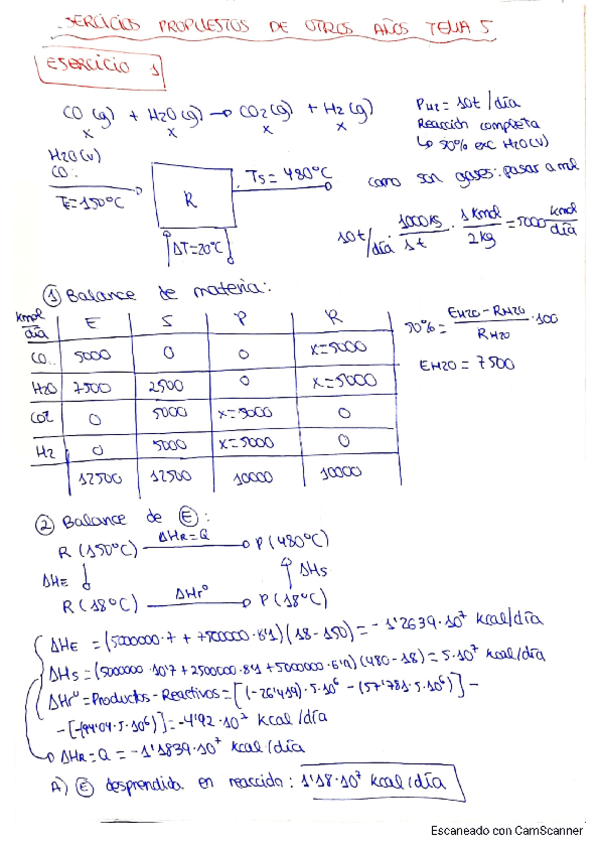 EJERCICIOS PROPUESTOS DE OTROS AÑOS TEMA 5
EJERCICIO 1
CO (g) + H2O (g) → CO2 (g) + H2 (g)
x x x x
PH2 = 10t/día
Reacción completa
↳ 50% exc H2O(v)
H2O(v)
CO
TE = 150°C
R
Ts = 480°C
ΔT = 20°C
como son gases: pasar a mol
10t/día · 1000Kg/1t · 1Kmol/2Kg = 5000 kmol/día
① Balance de materia:
kmol/día E S P R
CO 5000 0 0 x=5000
H2O 7500 2500 0 x=5000
CO2 0 5000 x=5000 0
H2 0 5000 x=5000 0
12500 12500 10000 10000
50% = EH2O - RH2O / RH2O · 100
EH2O = 7500
② Balance de Ⓔ:
R (150°C) ΔHR=Q → P (480°C)
ΔHE ↓ ↑ ΔHs
R (18°C) ΔHr° → P (18°C)
ΔHE = (5000000·7 + 7500000·8'1)(18-150) = -1'2639·10⁷ kcal/día
ΔHs = (5000000·10'7 + 2500000·8'1 + 5000000·6'9)(480-18) = 5·10⁷ kcal/día
ΔHr° = Productos - Reactivos = [(-26'419)·5·10⁶ - (57'781·5·10⁶)] -
-[-(94'04·5·10⁶)] = -4'92·10⁷ kcal/día
ΔHR = Q = -1'1839·10⁷ kcal/día
A) Ⓔ desprendida en reacción: 1'18·10⁷ kcal/día
Escaneado con CamScanner